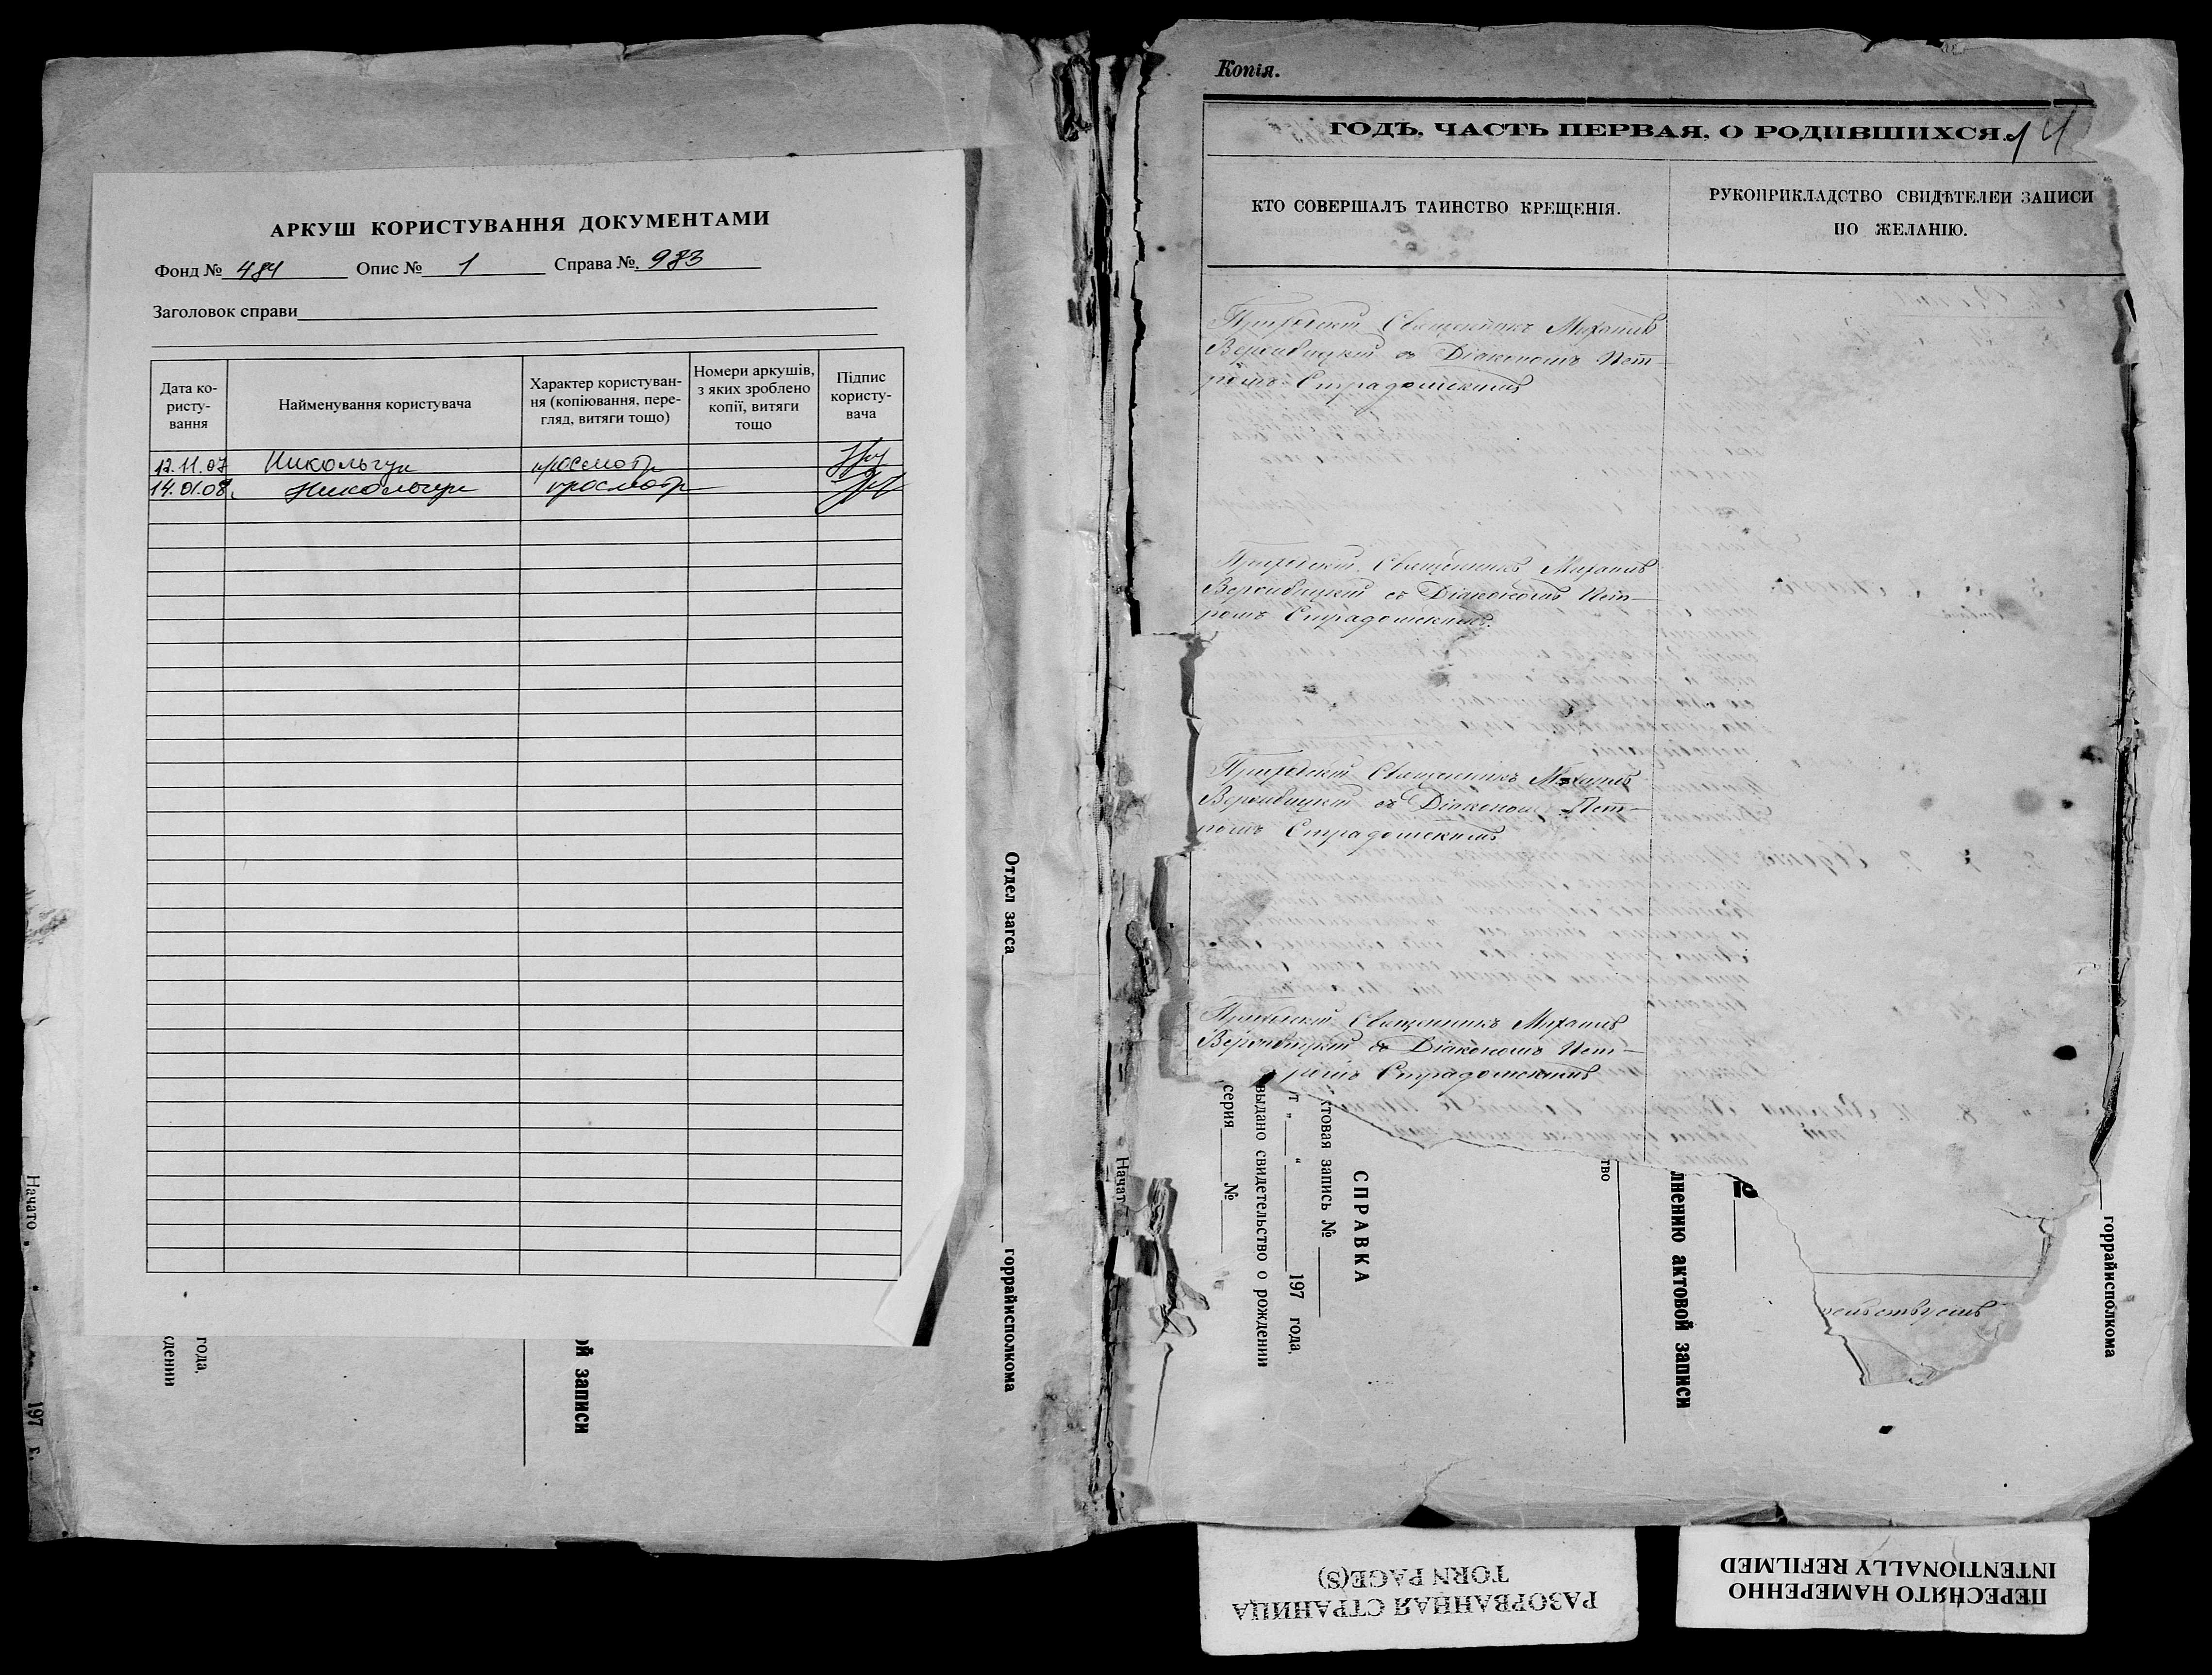 АРКУШ КОРИСТУВАННЯ ДОКУМЕНТАМИ
Фонд № 484 Опис № 1 Справа № 983
Заголовок справи
Дата ко-
ристу-
вання
Найменування користувача
Характер користуван-
ня (копіювання, пере-
гляд, витяги тощо)
Номери аркушів,
з яких зроблено
копії, витяги
тощо
Підпис
користу-
вача
12.11.07 просмотр
14.01.08 просмотр
Отдел загса
горрайисполкома
ОЙ ЗАПИСИ
года.
дении
Начато
197 г.
Копія.
ГОДЪ, ЧАСТЬ ПЕРВАЯ, О РОДИВШИХСЯ.
КТО СОВЕРШАЛЪ ТАИНСТВО КРЕЩЕНІЯ.
РУКОПРИКЛАДСТВО СВИДѢТЕЛЕЙ ЗАПИСИ
ПО ЖЕЛАНІЮ.
Приходскій Священникъ Михаилъ
съ Діакономъ Пет-
ромъ Страдомскимъ
Приходскій Священникъ Михаилъ
съ Діакономъ Пет-
ромъ Страдомскимъ.
Приходскій Священникъ Михаилъ
съ Діакономъ Пет-
ромъ Страдомскимъ
Приходскій Священникъ Михаилъ
съ Діакономъ Пет-
ромъ Страдомскимъ
Начат
серия № 
выдано свидетельство о рождении
т „ “ 197 года.
ктовая запись №
СПРАВКА
тво
лнению актовой записи
горрайисполкома
РАЗОРВАННАЯ СТРАНИЦА
TORN PAGE(S)
ПЕРЕСНЯТО НАМЕРЕННО
INTENTIONALLY REFILMED